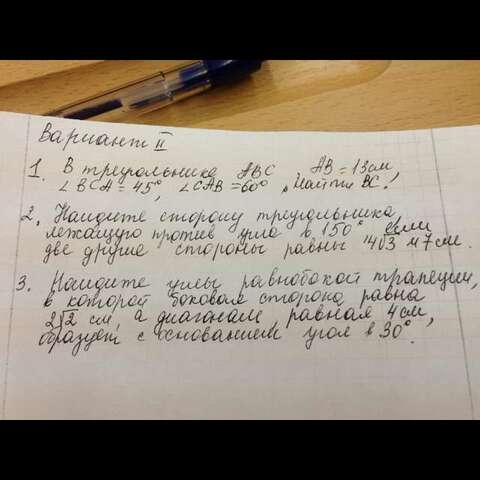 Вариант II
1. В треугольнике ABC AB = 13 см
∠BCA = 45°, ∠CAB = 60°, Найти BC!
2. Найдите сторону треугольника,
лежащую против угла в 150° если
две другие стороны равны 4√3 и 7 см.
3. Найдите углы равнобокой трапеции,
в которой боковая сторона равна
2√2 см, а диагональ равная 4 см,
образует с основанием угол в 30°.